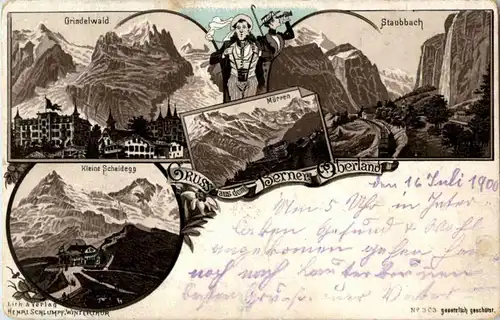 Grindelwald.
Staubbach
Mürren
Kleine Scheidegg
Gruss aus dem Berner Oberland
den 16 Juli 1900
Um 5 Uhr in Inter-
laken Gesund & Wohl
angekommen gehen
noch nach Lauterbrunnen
besten Gruss. euer Vater
Lith. & Verlag
Henri Schlumpf, Winterthur
No 303 gesetzlich geschützt.